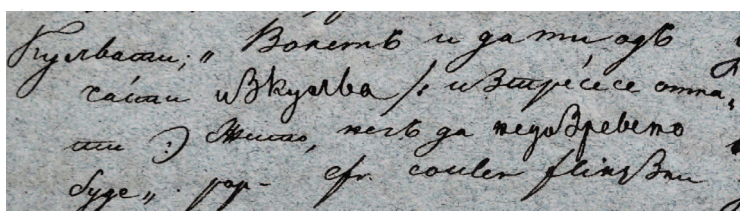 Кулвати; „ Волетъ и да ти одъ
части изкулва /: изтресе се отпа„
ти :/ Жито, негъ да недозревено
буде „ pop- cfr. couler fließen